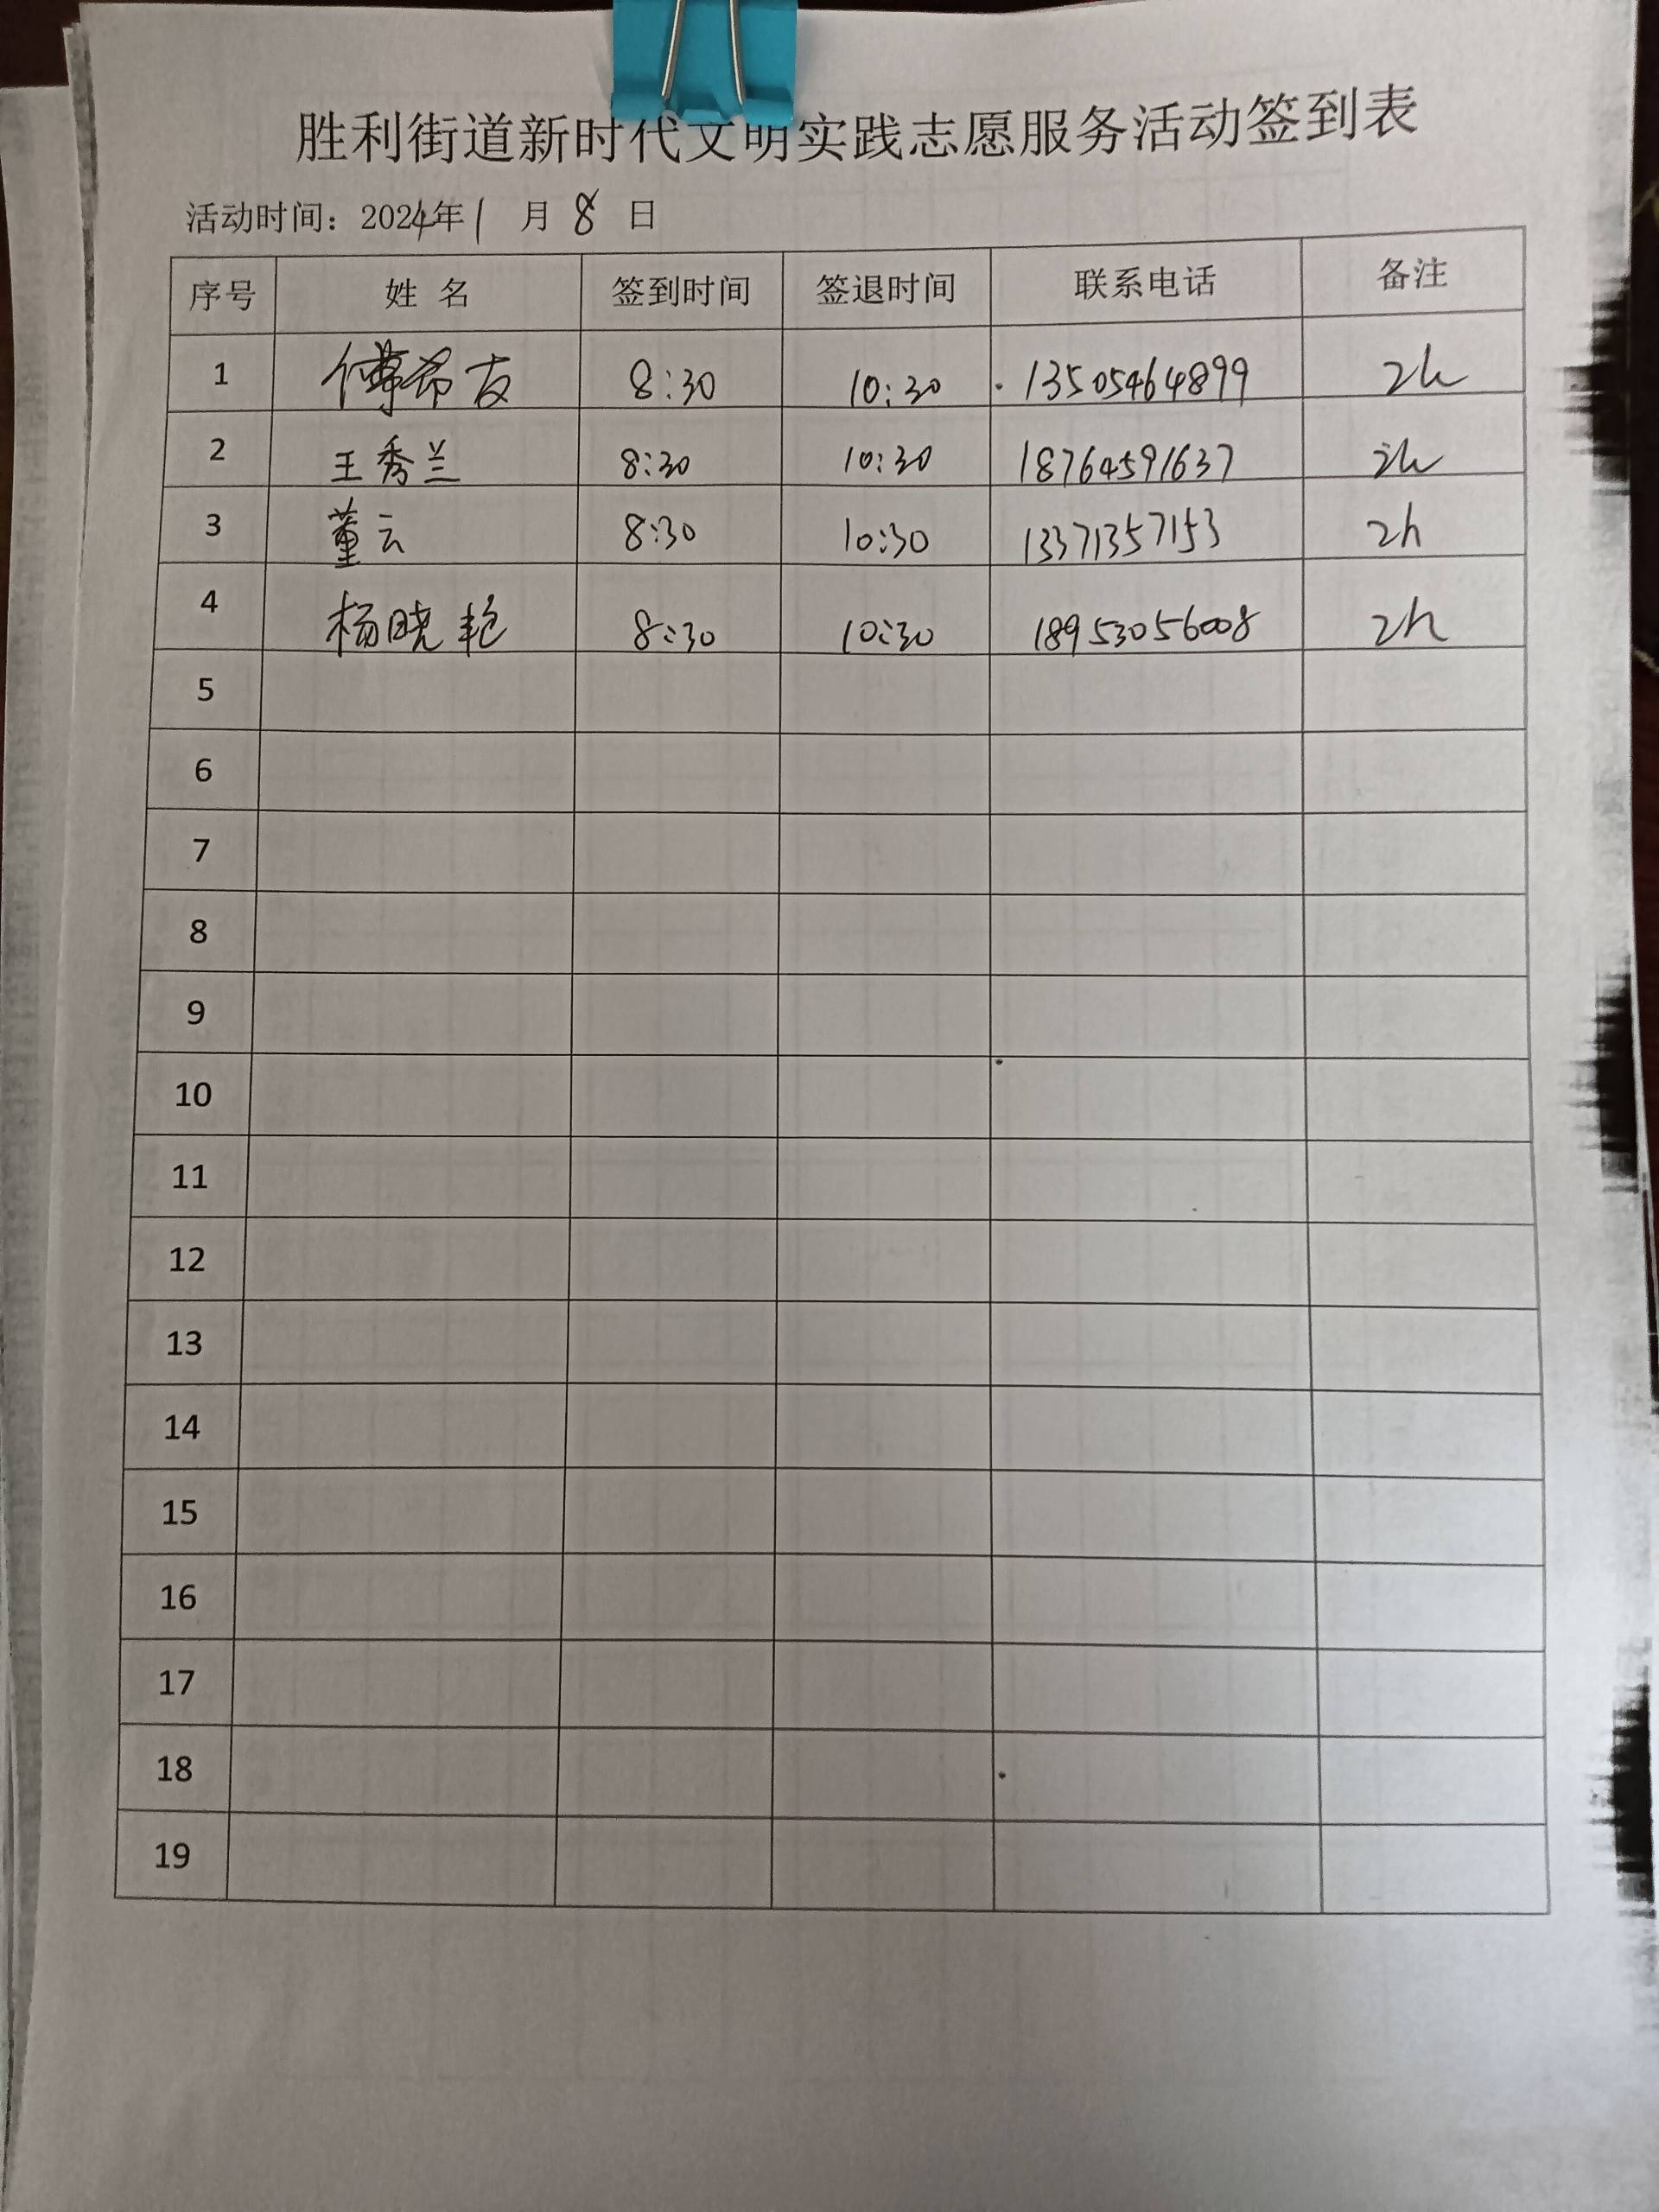 胜利街道新时代文明实践志愿服务活动签到表
活动时间：2024年1月8日
序号 姓 名 签到时间 签退时间 联系电话 备注
1 傅希友 8:30 10:30 13505464899 2h
2 王秀兰 8:30 10:30 18764591637 2h
3 董云 8:30 10:30 13371357153 2h
4 杨晓艳 8:30 10:30 18953056008 2h
5
6
7
8
9
10
11
12
13
14
15
16
17
18
19